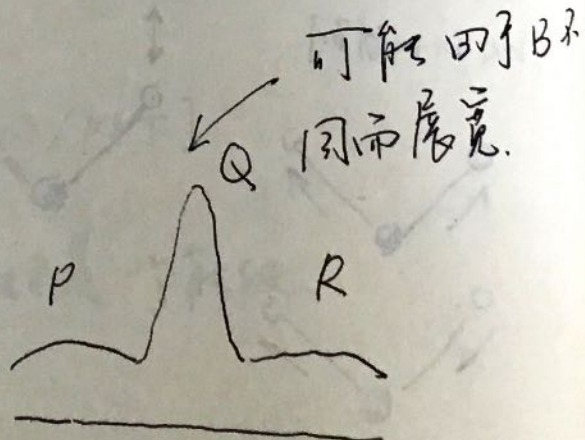 可能由于B不
同而展宽.
Q
P
R